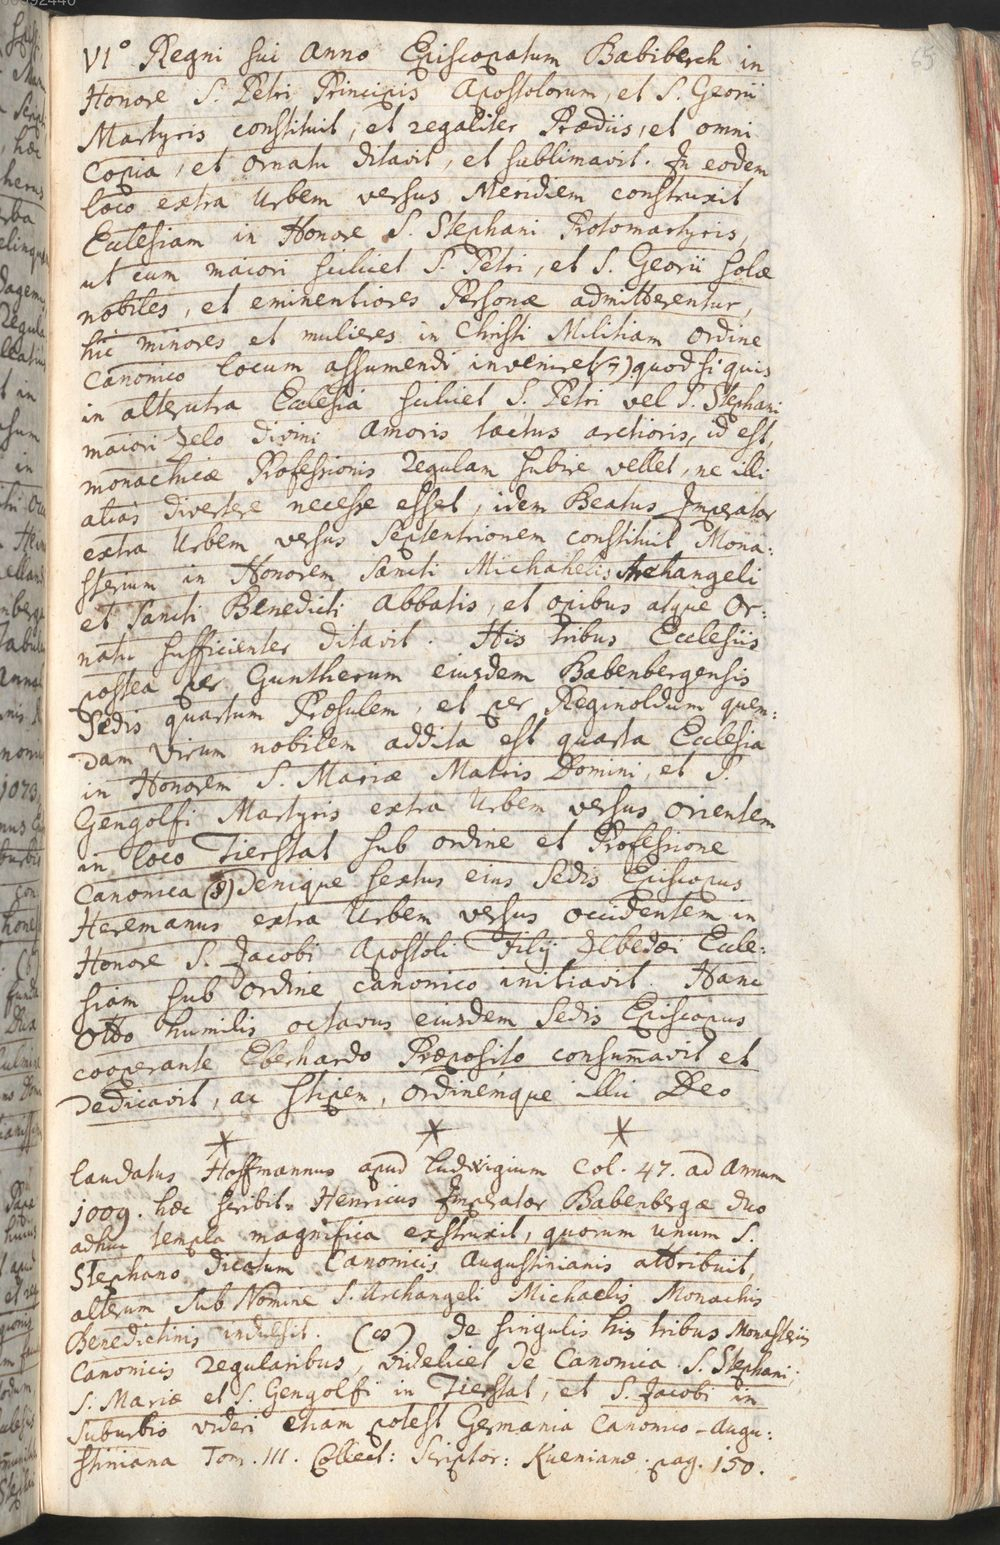 65
VI° Regni sui Anno Episcopatum Babiberch in
Honore S. Petri Principis Apostolorum, et S. Georii
Martyris constituit, et regaliter Prædiis, et omni
Copia, et ornatu ditavit, et sublimavit. In eodem
loco extra Urbem versus Meridiem construxit
Ecclesiam in Honore S. Stephani Protomartyris,
ut cum maiori scilicet S. Petri, et S. Georii solæ
nobiles, et eminentiores Personæ admitterentur,
hic minores et mulieres in Christi Militiam ordine
Canonico locum assumendi inveniret (7) quod si quis
in alterutra Ecclesia scilicet S. Petri vel S. Stephani
maiori Zelo divini Amoris tactus arctioris, id est,
monachicæ Professionis regulam subire vellet, ne illi
alias divertere necesse esset, idem Beatus Imperator
extra Urbem versus Septentrionem constituit Mona:
sterium in Honorem Sancti Michahelis Archangeli
et Sancti Benedicti Abbatis, et opibus atque Or:
natu sufficienter ditavit. His tribus Ecclesiis
postea per Guntherum eiusdem Babenbergensis
Sedis quartum Præsulem, et per Reginoldum quen:
dam virum nobilem addita est quarta Ecclesia
in Honorem S. Mariæ Matris Domini, et S.
Gengolfi Martyris extra Urbem versus orientem
in loco Tierstat sub ordine et Professione
Canonica (8) Denique sextus eius Sedis Episcopus
Heremanus extra Urbem versus occidentem in
Honore S. Jacobi Apostoli Filij Zebedæi Eccle:
siam sub ordine canonico initiavit Hanc
Otto humilis octavus eiusdem Sedis Episcopus
cooperante Eberhardo Præposito consummavit et
Dedicavit, ac stipem, ordinemque illic Deo
laudatus Hoffmannus apud ludwigium Col. 47. ad Annum
1009. hæc scribit. Henricus Imperator Babenbergæ duo
adhuc templa magnifica exstruxit, quorum unum S.
Stephano dicatum Canonicis Augustinianis attribuit,
alterum sub Nomine S. Archangeli Michaelis Monachis
Benedictinis indulsit. de singulis his tribus Monasteriis
Canonicis regularibus, videlicet de Canonica S. Stephani,
S. Mariæ et S. Gengolfi in Tierstat, et S. Jacobi in
Suburbio videri etiam potest Germania Canonico-Augu:
stiniana Tom. III. Collect: Scriptor: Kuenianæ. pag. 150.